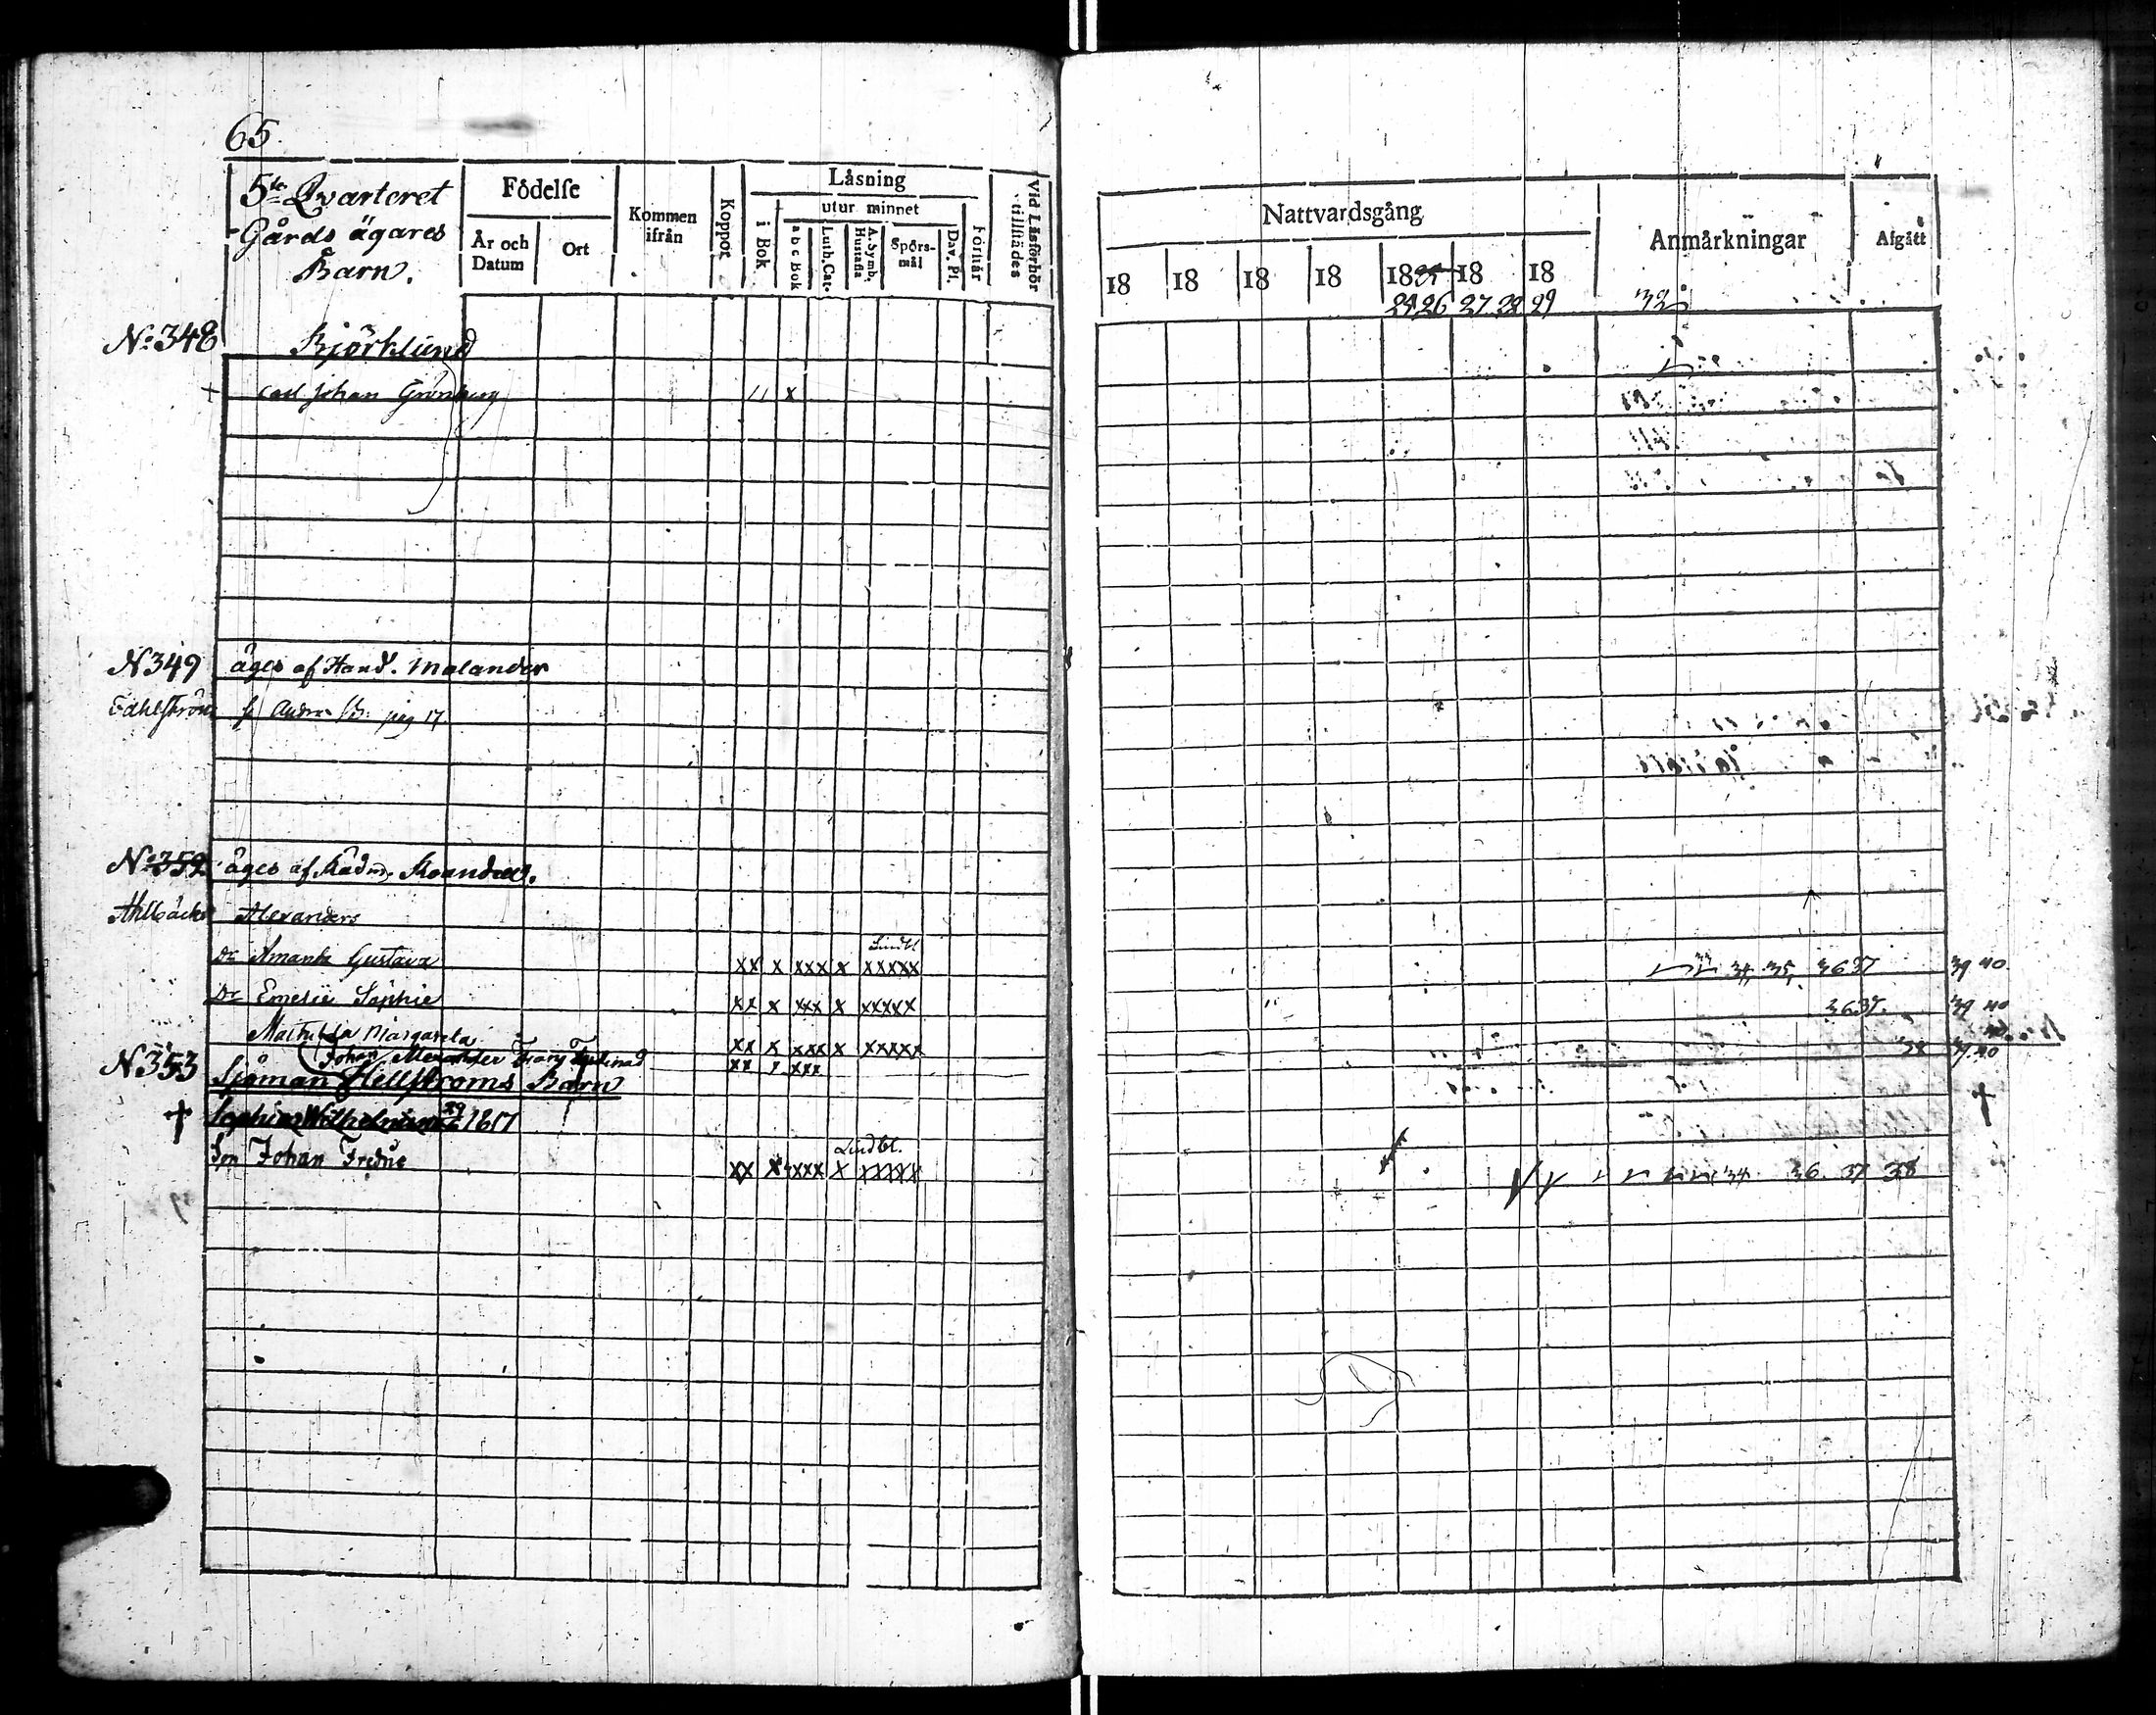 65
5te Qvarteret
Gårds ägares
Barn.
Födelse
År och Datum
Ort
Kommen ifrån
Koppor
Läsning
i Bok
utur minnet
a b c Bok
Luth. Cat.
A. Symb. Hustafla
Spörsmål
Dav. Ps.
Förstår
Vid Läsförhör tillstädes
Nattvardsgång
18 18 18 18 18 25 18 18
24 26 27 28 29
Anmärkningar
32
Afgått
No 348 Björklund
+ Carl Johan Grönberg 11 x
N 349 äges af Hand. Malander
pag 17
No 352 äges af Rådm.
Alexanders
Lindbl.
Dr Amanta Gustava xx x xxx x xxxxx 34, 35, 36 37 39 40.
Dr Emelie Sophie xx x xxx x xxxxx 36 37. 39 40
Mathilda Margareta xx x xxx x xxxxx
Johan Alexander Ferdinad xx x xxx 38 39 40
N 353 Sjöman Hellströms Barn
† Sophia Wilhelmina 1817 †
Lindbl.
Son Johan Fredric xx x xxx x xxxxx 34 36. 37 38